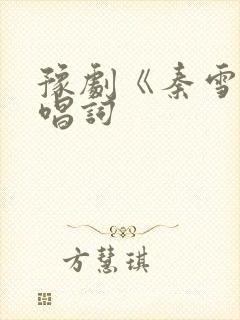 豫劇《秦雪
唱詞
方慧琪